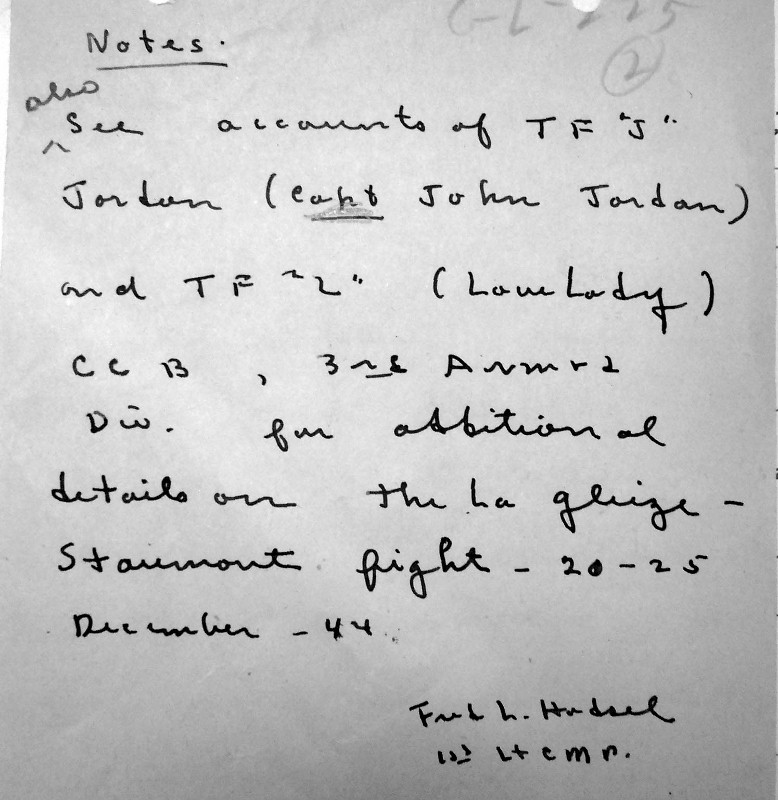 C-L-225
2
Notes.
also
See accounts of TF "J"
Jordan (Capt John Jordan)
and TF "L" (Lovelady)
CCB, 3rd Armrd
Div. for additional
details on the La gleize -
Stoumont fight - 20-25
December - 44.
Fred L. Hadsel
1st Lt CMP.